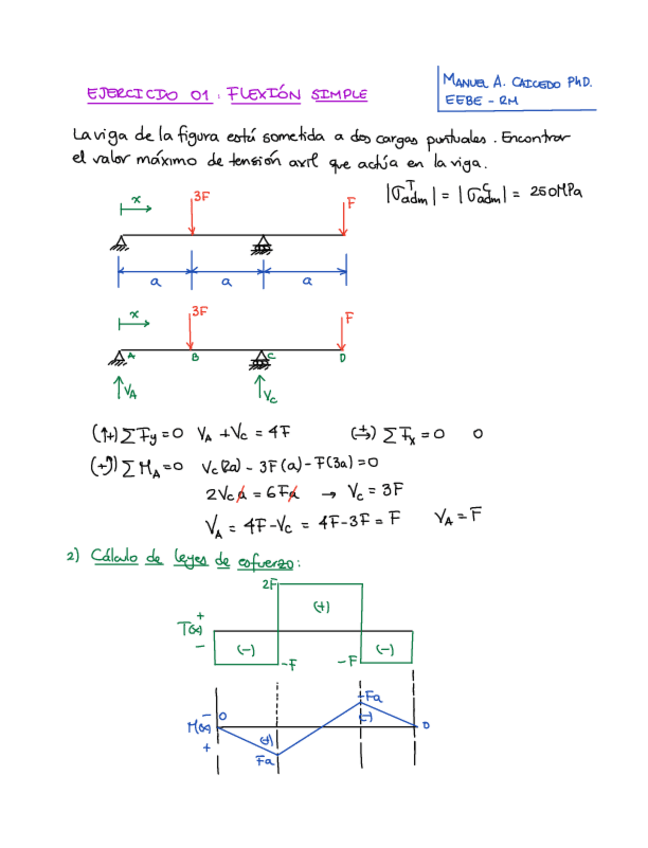 MANUEL A. CAICEDO PhD.
EEBE - RM
EJERCICIO 01: FLEXIÓN SIMPLE
La viga de la figura está sometida a dos cargas puntuales. Encontrar
el valor máximo de tensión axil que actúa en la viga.
|σ_adm^T| = |σ_adm^C| = 250MPa
x 3F F
a a a
x 3F F
A B C D
V_A V_C
(↑+) ΣF_y=0 V_A + V_C = 4F (→+) ΣF_x = 0 0
(+↺) ΣM_A=0 V_C(2a) - 3F(a) - F(3a) = 0
2V_C a = 6Fa → V_C = 3F
V_A = 4F-V_C = 4F-3F = F V_A = F
2) Cálculo de leyes de esfuerzo:
2F
(+)
T(x) + -
(-) -F -F (-)
-Fa
M(x) - + 0 (-) 0
(+)
Fa